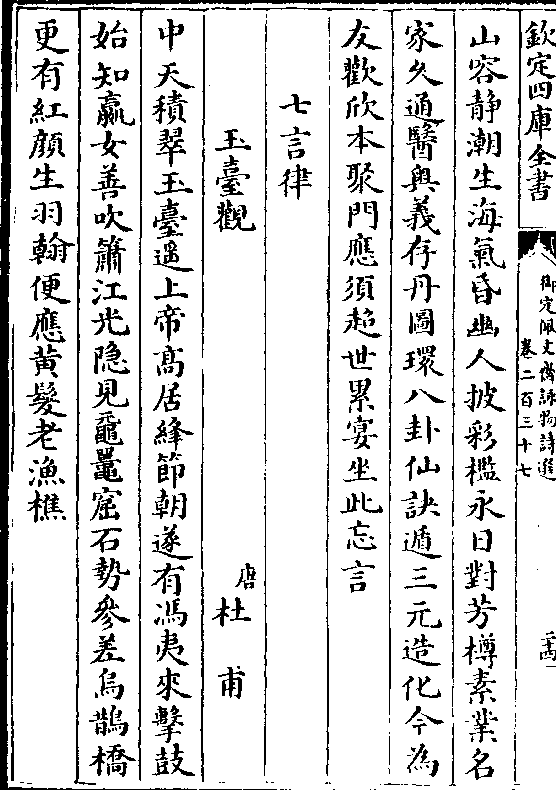 欽定四庫全書
御定佩文齋詠物詩選
卷二百三十七
二十四
山容静潮生海氣昏幽人披彩檻永日對芳樽素業名
家久通醫與義存丹圖環八卦仙訣遁三元造化今為
友歡欣本聚門應須超世累宴坐此忘言
七言律
玉臺觀
唐杜甫
中天積翠玉臺遥上帝髙居絳節朝遂有馮夷來擊鼓
始知嬴女善吹簫江光隐見黿鼉窟石勢參差烏鵲橋
更有紅顔生羽翰便應黄髮老漁樵